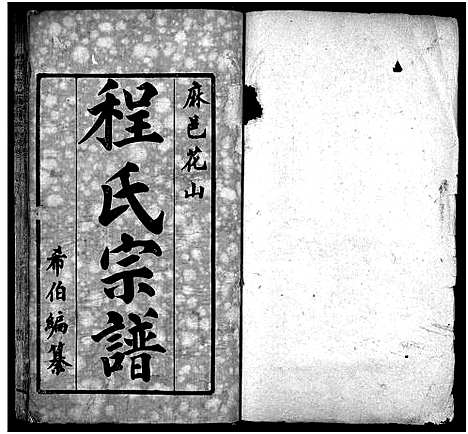 麻邑花山
程氏宗譜
希伯編纂